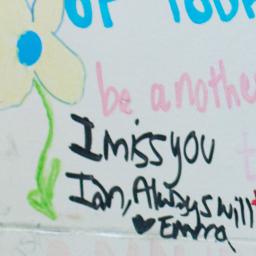 OF YOUR
be another
I miss you
Ian, Always will
♥ Emma